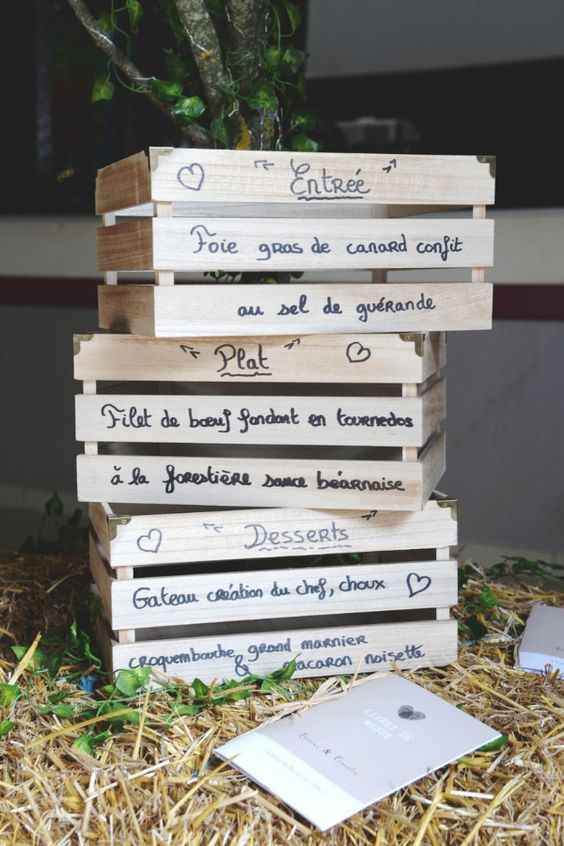 Entrée
Foie gras de canard confit
au sel de guérande
Plat
Filet de bœuf fondant en tournedos
à la forestière sauce béarnaise
Desserts
Gateau création du chef, choux
croquembouche grand marnier
& macaron noisette